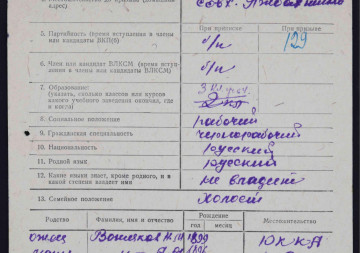 адрес)
совх.
При приписке
При призыве
5. Партийность (время вступления в члены
или кандидаты ВКП(б)
б/п
129
6. Член или кандидат ВЛКСМ (время вступ-
ления в члены или кандидаты ВЛКСМ)
б/п
7. Образование:
(указать, сколько классов или курсов
какого учебного заведения окончил, где
и когда)
8. Социальное положение
рабочий
9. Гражданская специальность
чернорабочий
10. Национальность
Русский
11. Родной язык
Русский
12. Какие языки знает, кроме родного, и в
какой степени владеет ими
не владеет
13. Семейное положение
Холост
Родство
Фамилия, имя и отчество
Рождение
год
месяц
Местожительство
отец
1899
ЮККА